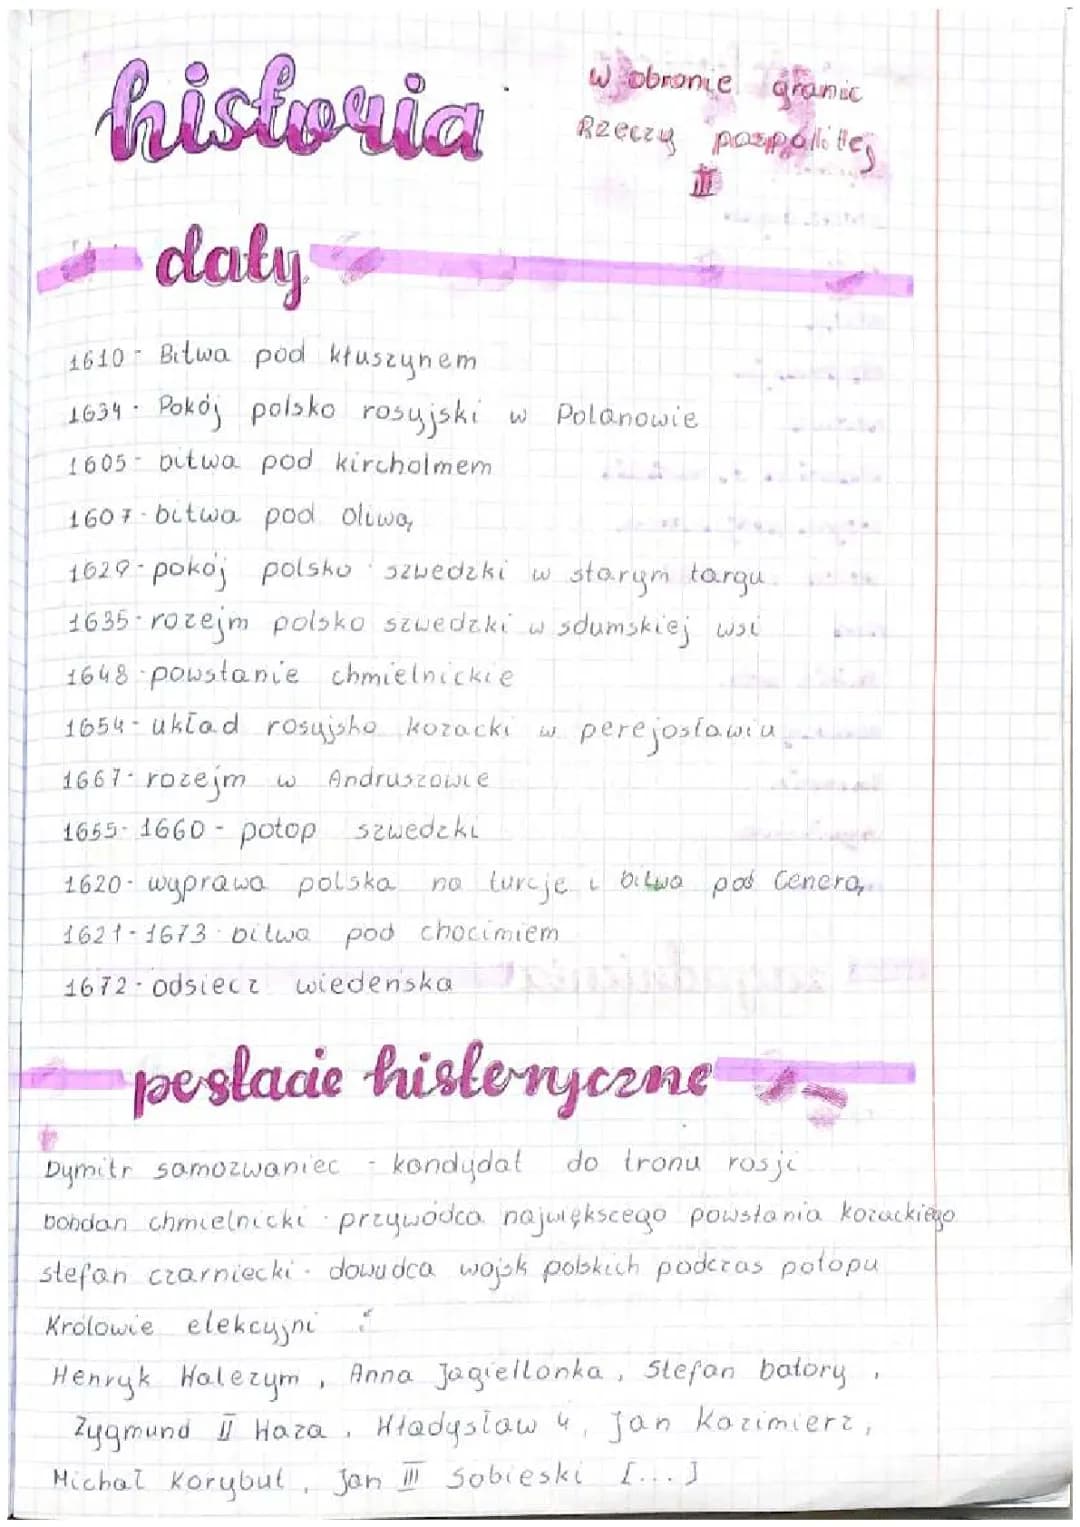 historia
w obronie granic
Rzeczy pospolitej
III
daty
1610 - Bitwa pod kłuszynem
1634 - Pokój polsko rosyjski w Polanowie
1605 - bitwa pod kircholmem
1607 - bitwa pod Oliwą
1629 - pokój polsko szwedzki w starym targu
1635 - rozejm polsko szwedzki w sdumskiej wsi
1648 - powstanie chmielnickie
1654 - układ rosyjsko kozacki w perejosławiu
1667 - rozejm w Andruszowie
1655 - 1660 - potop szwedzki
1620 - wyprawa polska na turcje i bitwa pod Cenerą
1621 - 1673 - bitwa pod chocimiem
1672 - odsiecz wiedeńska
postacie historyczne
Dymitr samozwaniec - kandydat do tronu rosji
bohdan chmielnicki - przywódca największego powstania kozackiego
stefan czarniecki - dowudca wojsk polskich podczas potopu
Królowie elekcyjni :
Henryk Walezym, Anna Jagiellonka, Stefan batory,
Zygmund II Waza, Władysław 4, Jan Kazimierz,
Michał Korybut, Jan III Sobieski [...]